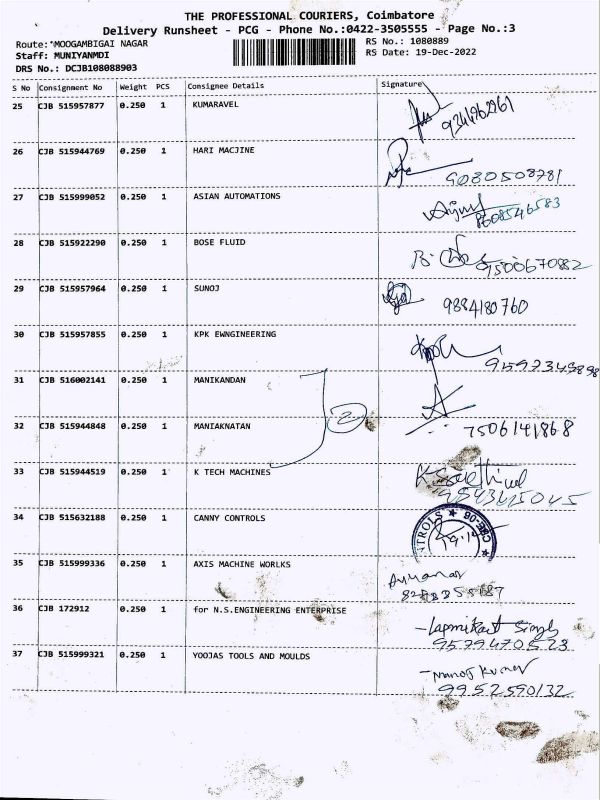 THE PROFESSIONAL COURIERS, Coimbatore
Delivery Runsheet - PCG - Phone No.:0422-3505555 - Page No.:3
Route:*MOOGAMBIGAI NAGAR
RS No.: 1080889
Staff: MUNIYANMDI
RS Date: 19-Dec-2022
DRS No.: DCJB108088903
S No Consignment No Weight PCS Consignee Details Signature
25 CJB 515957877 0.250 1 KUMARAVEL
26 CJB 515944769 0.250 1 HARI MACJINE
9080508781
27 CJB 515999052 0.250 1 ASIAN AUTOMATIONS
8608546583
28 CJB 515922290 0.250 1 BOSE FLUID
9500670882
29 CJB 515957964 0.250 1 SUNOJ
9884180760
30 CJB 515957855 0.250 1 KPK EWNGINEERING
9597349898
31 CJB 516002141 0.250 1 MANIKANDAN
2
32 CJB 515944848 0.250 1 MANIAKNATAN
7506141868
33 CJB 515944519 0.250 1 K TECH MACHINES
34 CJB 515632188 0.250 1 CANNY CONTROLS
35 CJB 515999336 0.250 1 AXIS MACHINE WORLKS
36 CJB 172912 0.250 1 for N.S.ENGINEERING ENTERPRISE
9579470523
37 CJB 515999321 0.250 1 YOOJAS TOOLS AND MOULDS
-Manoj Kumar
9952590132